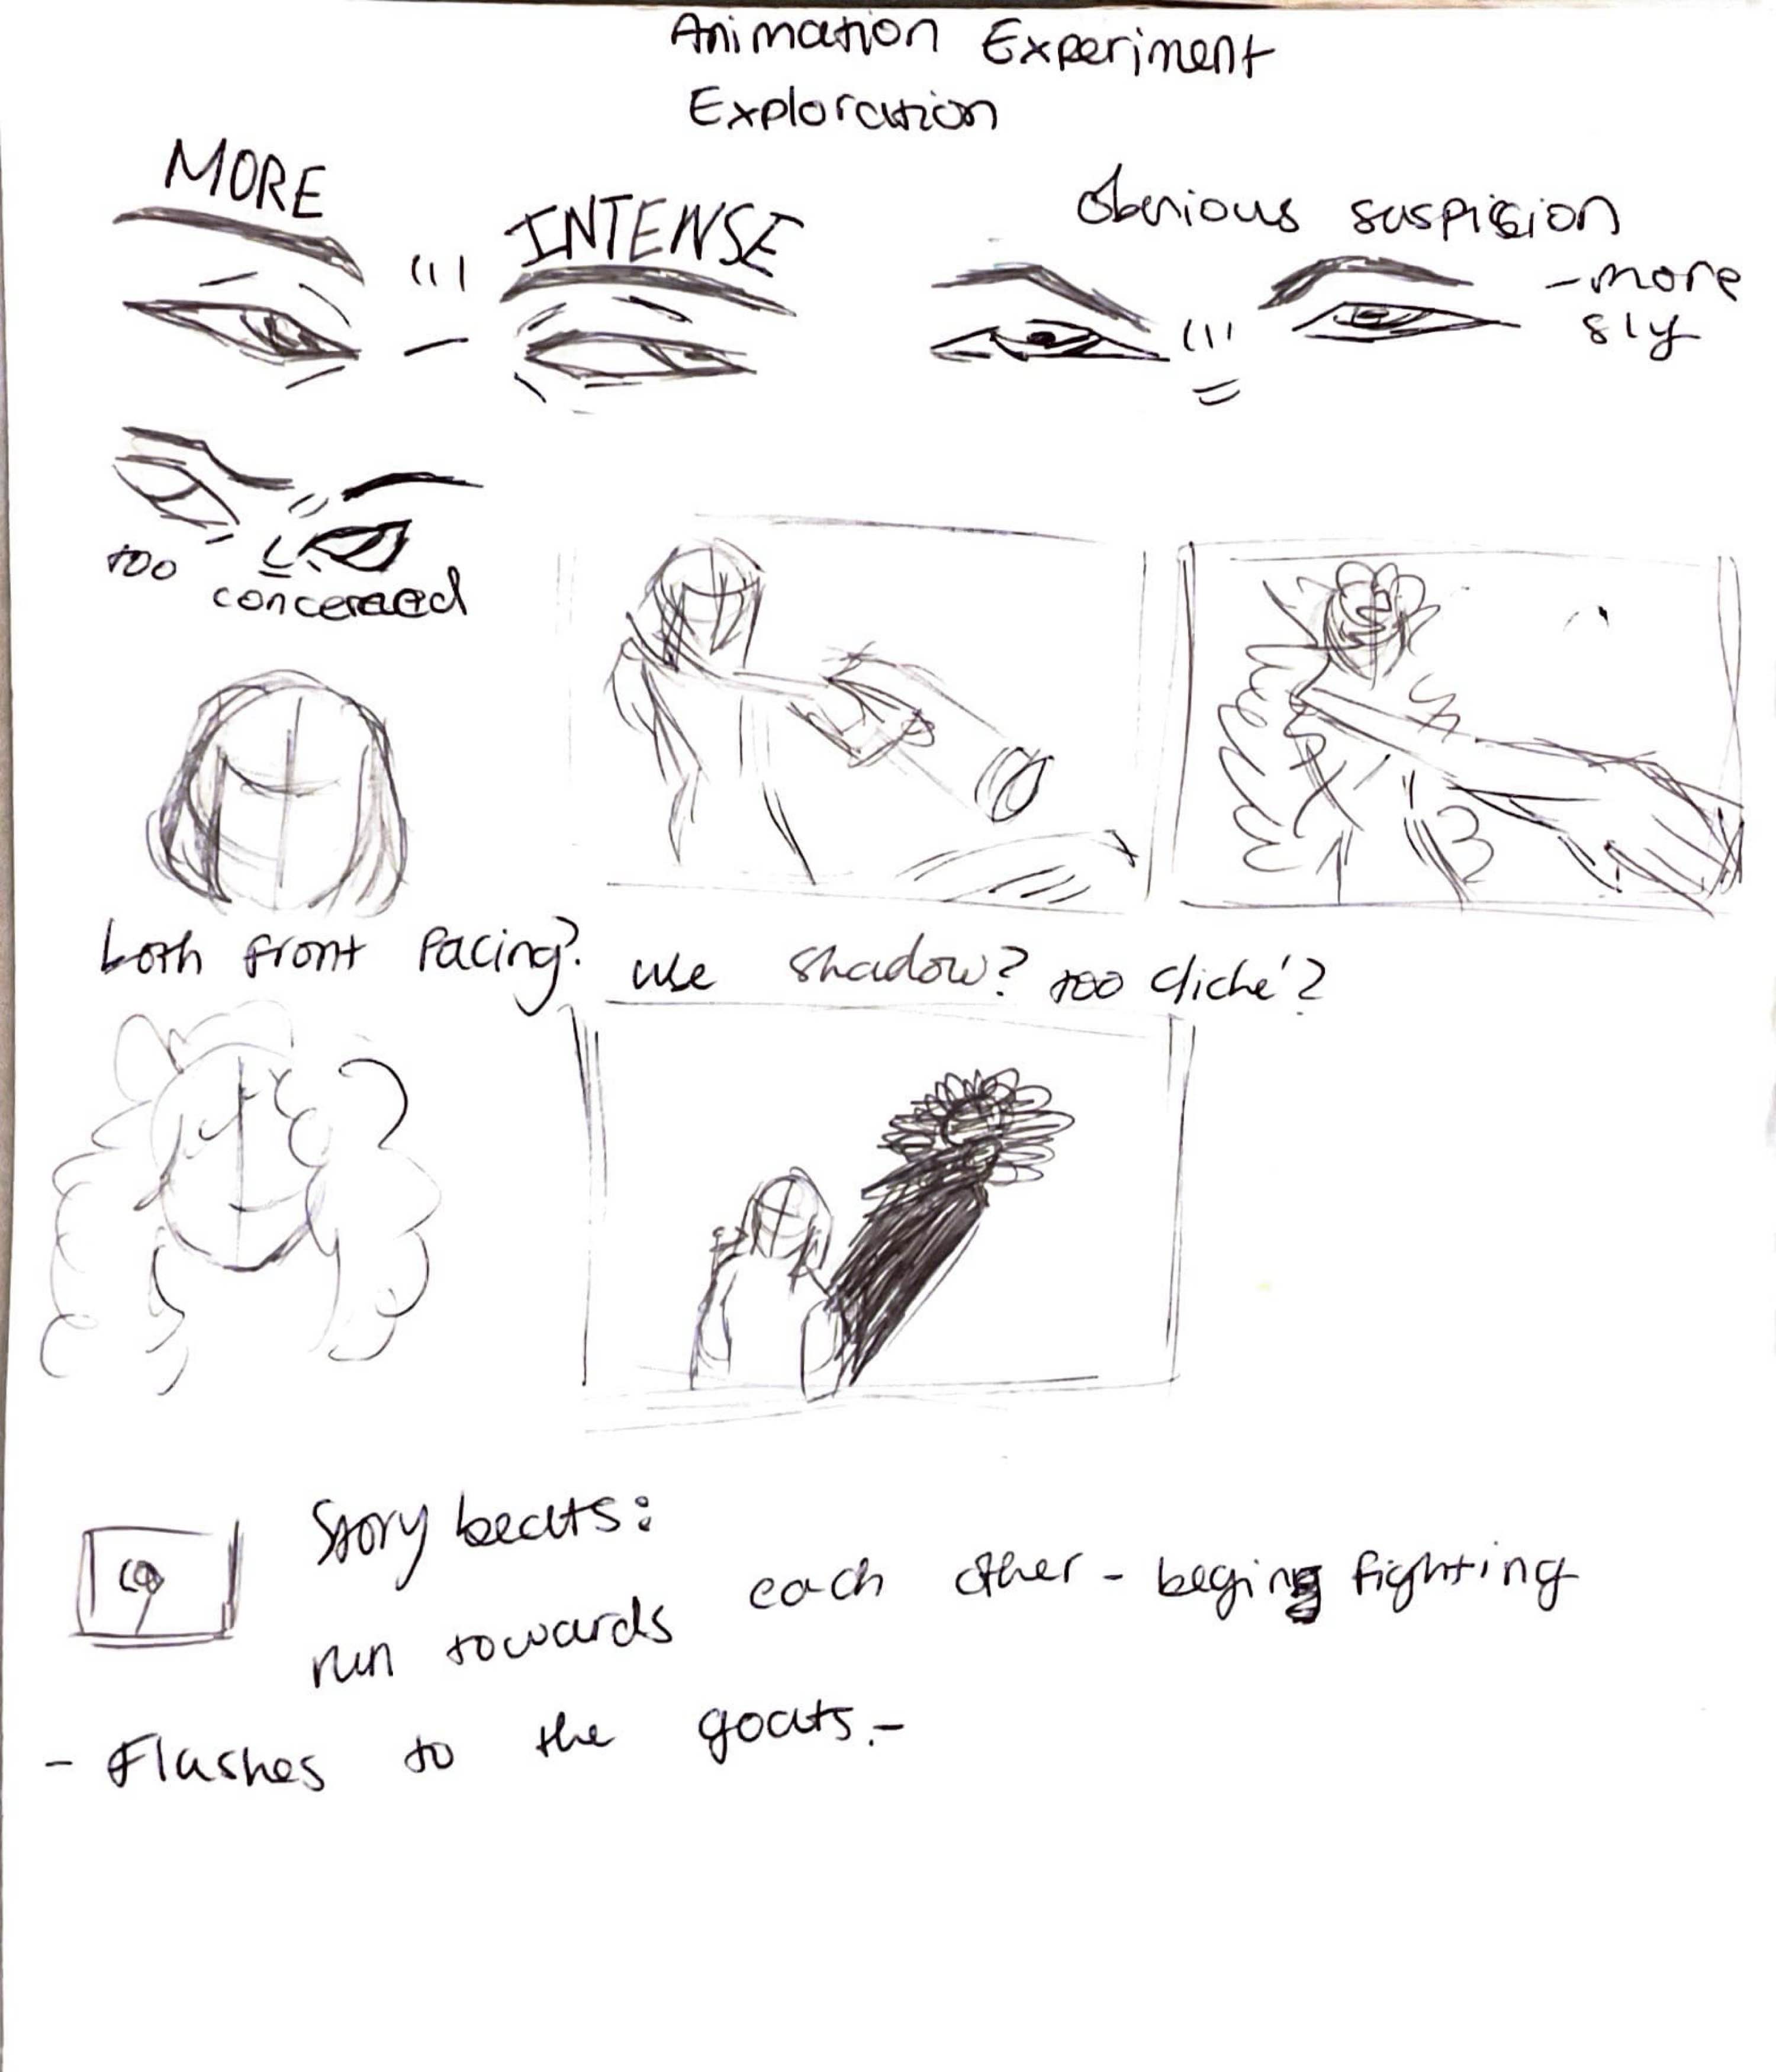 Animation Experiment
Exploration
MORE
INTENSE
Obvious suspision
- more
sly
too
concerned
both front facing?
use shadow? too cliché?
Story beats:
run towards each other - begin fighting
- Flashes to the goats. -